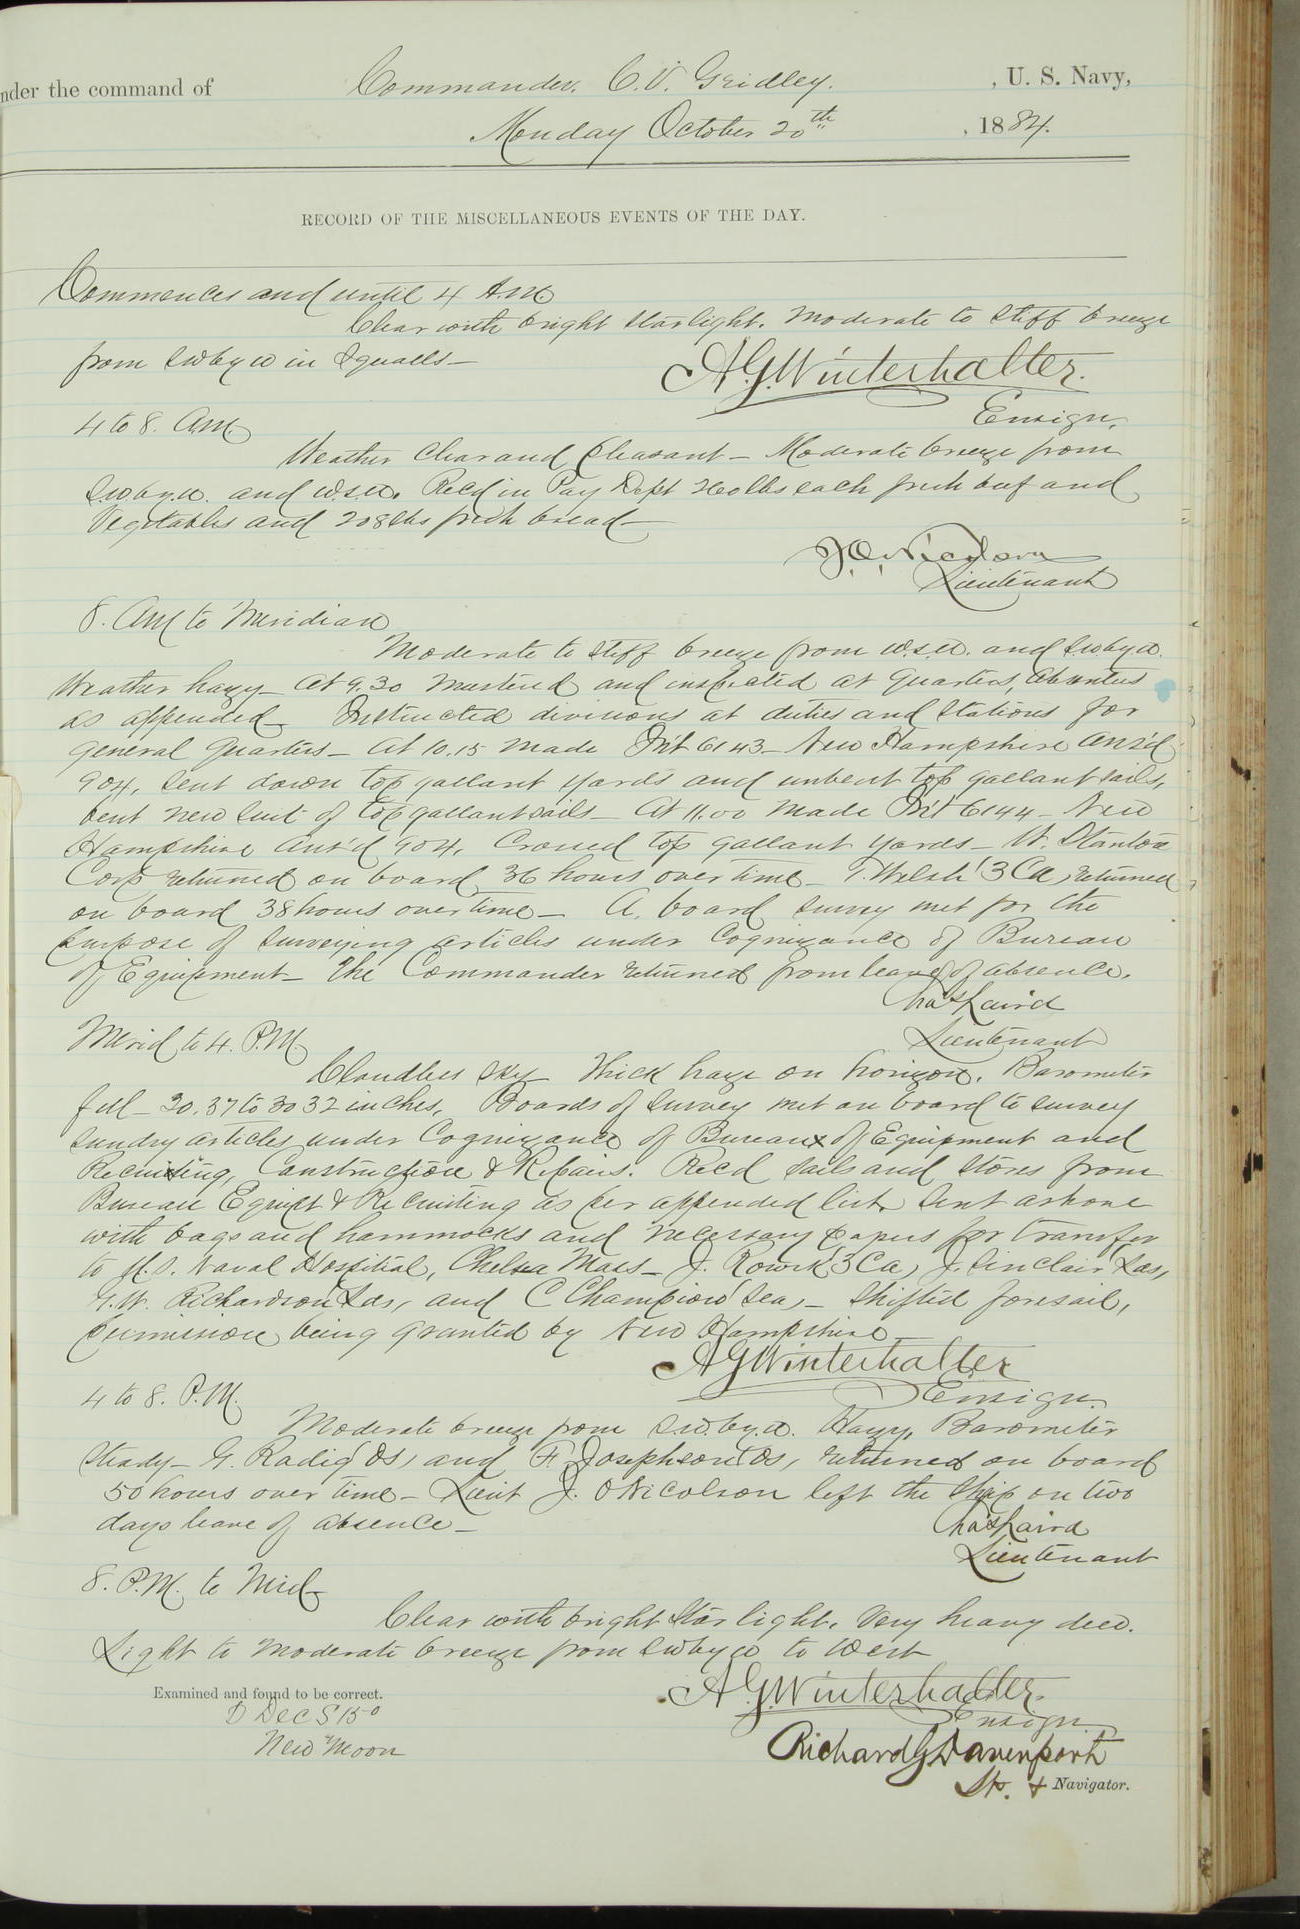 nder the command of Commander. C. V. Gridley. , U. S. Navy,
Monday October 20th , 1884.
RECORD OF THE MISCELLANEOUS EVENTS OF THE DAY.
Commences and until 4 A.M.
Clear with bright starlight. Moderate to stiff breeze
from SW by W in Squalls—
A.G. Winterhalter.
Ensign.
4 to 8. A.M.
Weather Clear and pleasant— Moderate breeze from
S.W. by W. and W.S.W. Rec'd in Pay Dept 260 lbs each fresh beef and
Vegetables and 208 lbs fresh bread—
J.O. Nicolson
Lieutenant
8. AM to Meridian
Moderate to stiff breeze from W.S.W. and S.W. by W.
Weather hazy— At 9.30 Mustered and inspected at Quarters, Absentees
as appended— Instructed divisions at duties and stations for
General Quarters— At 10.15 made 6143— New Hampshire Ans'd
904, sent down top gallant yards and unbent top gallant sails,
bent new suit of top gallant sails— At 11.00 Made 6144— New
Hampshire Ans'd 904, Crossed top gallant yards— W. Stanton
Corp returned on board 36 hours over time— T. Welsh 3 Ca, returned
on board 38 hours over time— A. board survey met for the
purpose of surveying articles under Cognizance of Bureau
of Equipment— The Commander returned from leave of absence.
Chas Laird
Lieutenant
Merid to 4. P.M.
Cloudless sky— Thick haze on horizon. Barometer
fell— 30.37 to 30 32 inches. Boards of Survey met on board to survey
sundry articles under Cognizance of Bureaux of Equipment and
Recruiting, Construction & Repairs. Recd sails and stores from
Bureau Equipt & Recruiting as per appended list. Sent ashore
with bags and hammocks and necessary papers for transfer
to U.S. Naval Hospital, Chelsea Mass— J. Rourk 3 Ca, J. Sinclair Lds,
G.W. Richardson Lds, and C Champion Sea,— Shifted foresail,
permission being granted by New Hampshire—
A G Winterhalter
Ensign.
4 to 8. P.M.
Moderate breeze from S.W. by W. Hazy, Barometer
steady— G. Radig OS, and F. Josephson OS, returned on board
50 hours over time— Lieut J. O Nicolson left the Ship on two
days leave of absence—
Chas Laird
Lieutenant
8. P.M. to Mid—
Clear with bright Star light. Very heavy dew.
Light to moderate breeze from SW by W to West
A.G. Winterhalter.
Ensign
Examined and found to be correct.
D Dec S 15°
New Moon
Richard G Davenport
Lt. & Navigator.